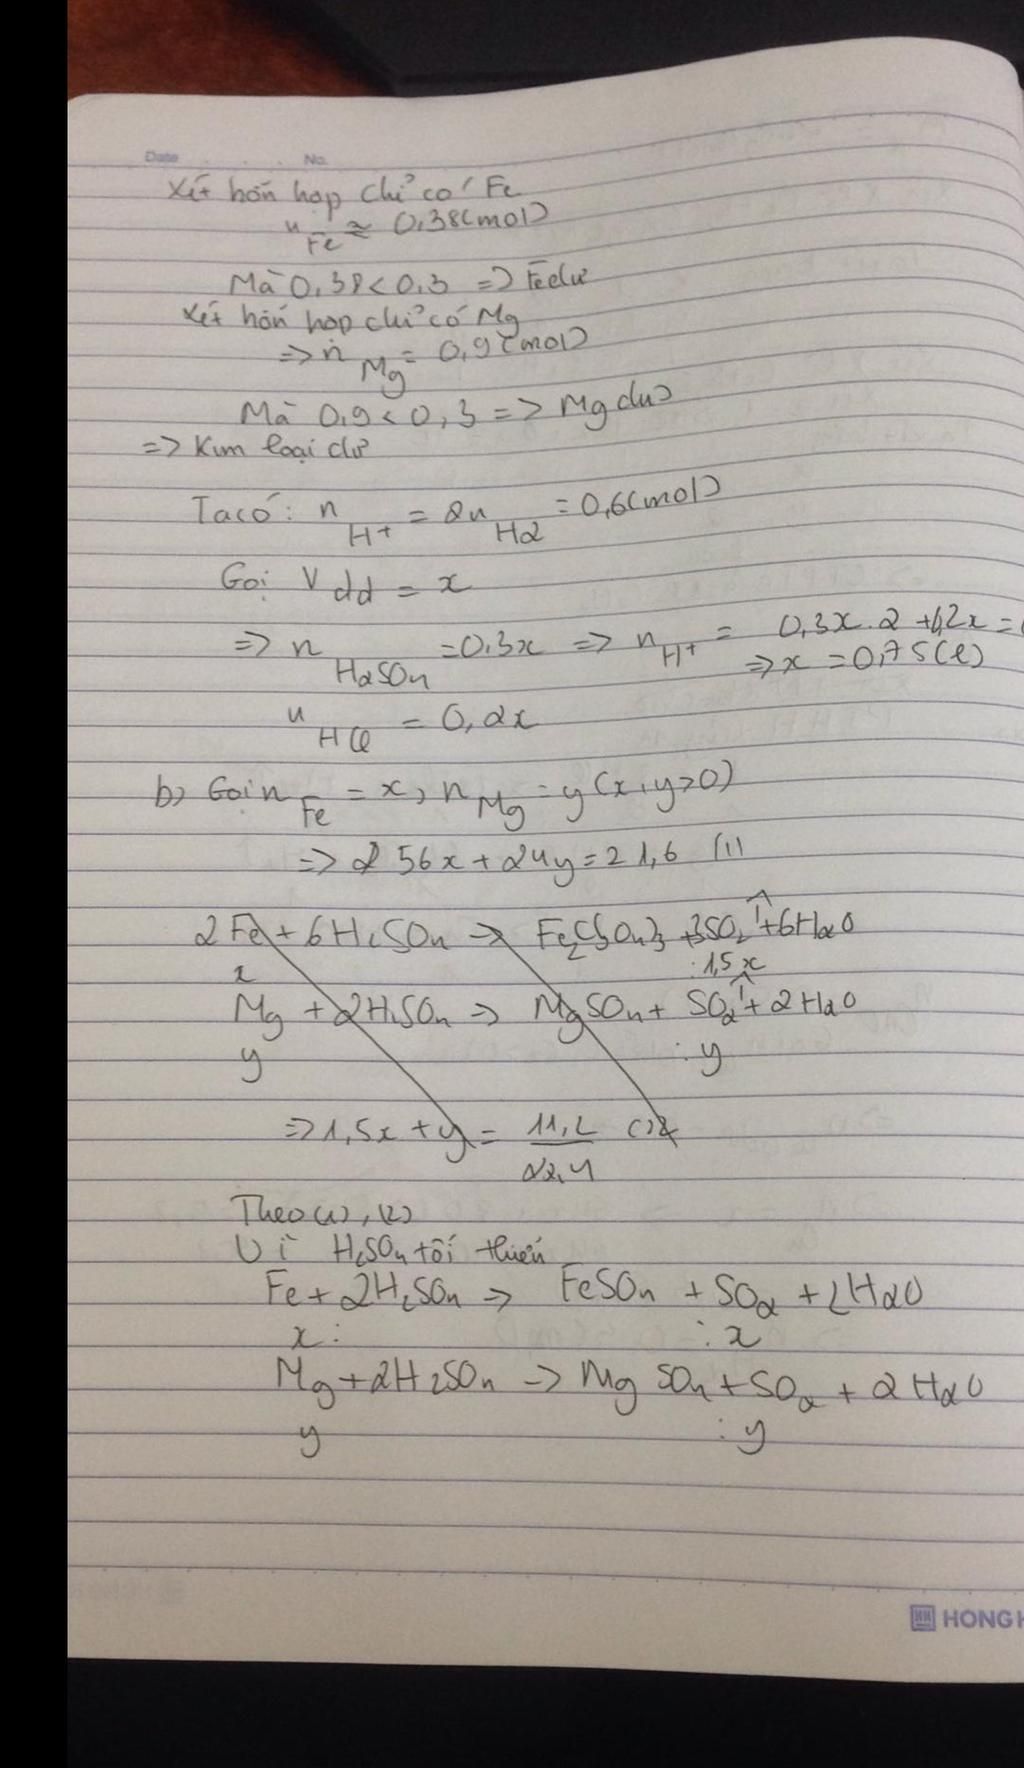 Date No.
Xét hỗn hợp chỉ có Fe
n Fe ≈ 0,38(mol)
Mà 0,38 < 0,3 => Fe dư
Xét hỗn hợp chỉ có Mg
=> n Mg = 0,9(mol)
Mà 0,9 < 0,3 => Mg dư
=> Kim loại dư
Ta có: n H+ = 2n H2 = 0,6(mol)
Gọi V dd = x
=> n H2SO4 = 0,3x => n H+ = 0,3x.2 + 0,2x =
=> x = 0,75(l)
n HCl = 0,2x
b) Gọi n Fe = x, n Mg = y (x,y>0)
=> 56x + 24y = 21,6 (1)
2Fe + 6H2SO4 => Fe2(SO4)3 + 3SO2↑ + 6H2O
x : 1,5x
Mg + 2H2SO4 => MgSO4 + SO2↑ + 2H2O
y : y
=> 1,5x + y = 11,2/22,4 (2)
Theo (1), (2)
Vì H2SO4 tối thiểu
Fe + 2H2SO4 => FeSO4 + SO2 + 2H2O
x : : x
Mg + 2H2SO4 => MgSO4 + SO2 + 2H2O
y : y
HONG H